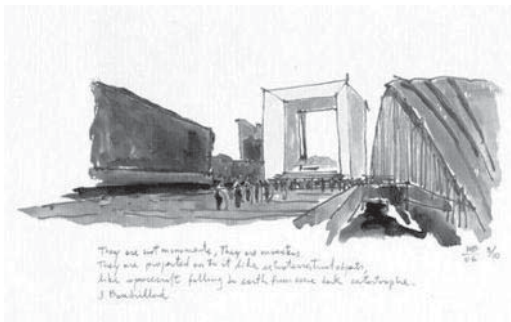 They are not monuments, They are monsters.
They are projected on to it like extraterrestrial objects,
like spacecraft falling to earth from some dark catastrophe.
J Baudrillard
MB 9/10
06